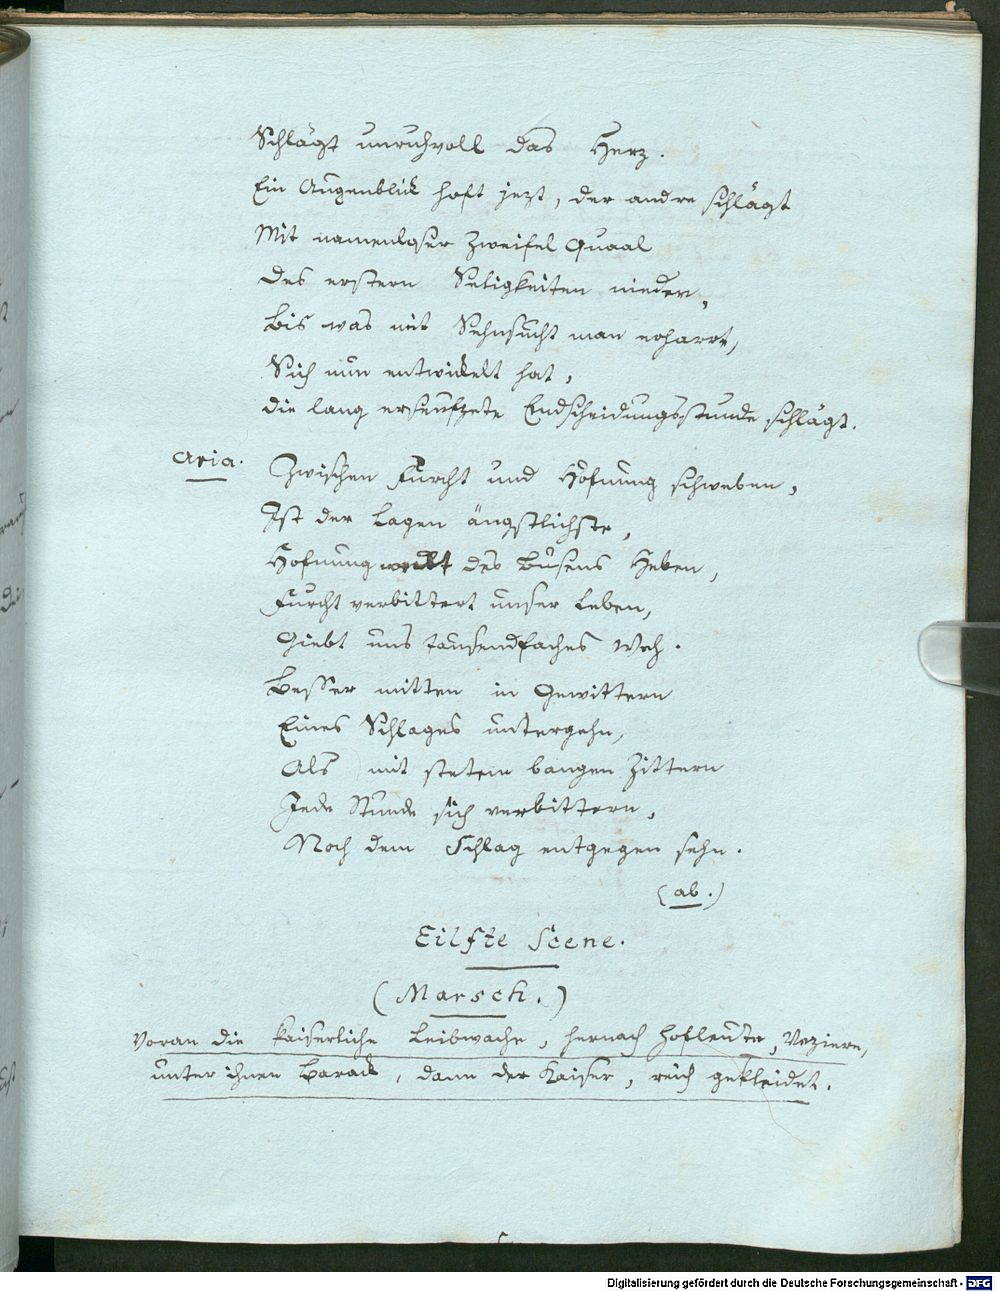 Schlägt unruhvoll das Herz.
Ein Augenblick hoft jezt, der andre schlägt
Mit namenloser Zweifel Quaal
Des erstern Seligkeiten nieder,
Bis was mit Sehnsucht man erharrt,
Sich nun entwickelt hat,
die lang erseufzete Endscheidungsstunde schlägt.
Aria. Zwischen Furcht und Hofnung schweben,
Ist der Lagen ängstlichste,
Hofnung des Busens Heben,
Furcht verbittert unser Leben,
Giebt uns tausendfaches Weh.
Besser mitten in Gewittern
Eines Schlages untergehn,
Als mit stetem bangen Zittern
Jede Stunde sich verbittern,
Noch dem Schlag entgegen sehn.
(ab.)
Eilfte Scene.
(Marsch.)
Voran die kaiserliche Leibwache, hernach Hofleute, Veziere,
unter ihnen Barack, dann der Kaiser, reich gekleidet.
Digitalisierung gefördert durch die Deutsche Forschungsgemeinschaft - DFG